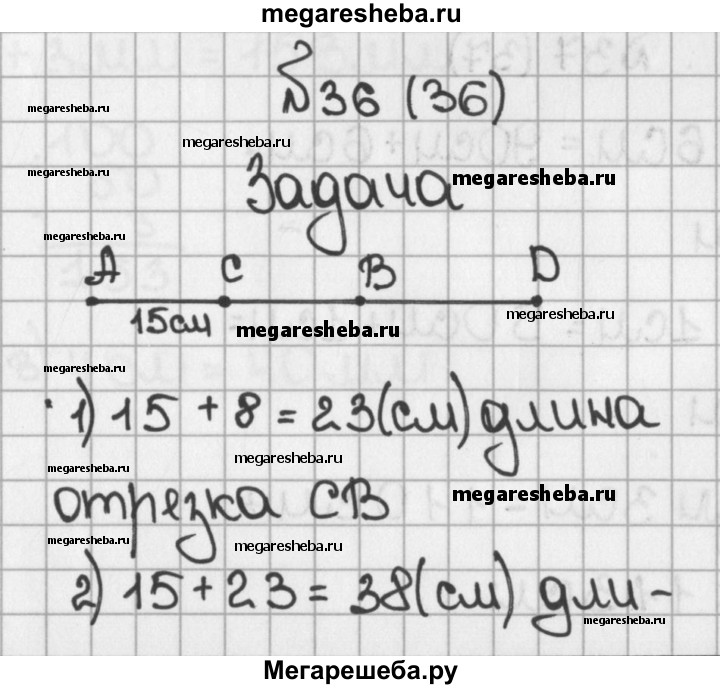 megaresheba.ru
№36 (36)
megaresheba.ru
megaresheba.ru
Задача
megaresheba.ru
megaresheba.ru
megaresheba.ru
A C B D
15см
megaresheba.ru
megaresheba.ru
megaresheba.ru
1) 15 + 8 = 23(см) длина
megaresheba.ru
megaresheba.ru
отрезка CB
megaresheba.ru
megaresheba.ru
megaresheba.ru
2) 15 + 23 = 38(см) дли-
megaresheba.ru
megaresheba.ru
Мегарешеба.ру